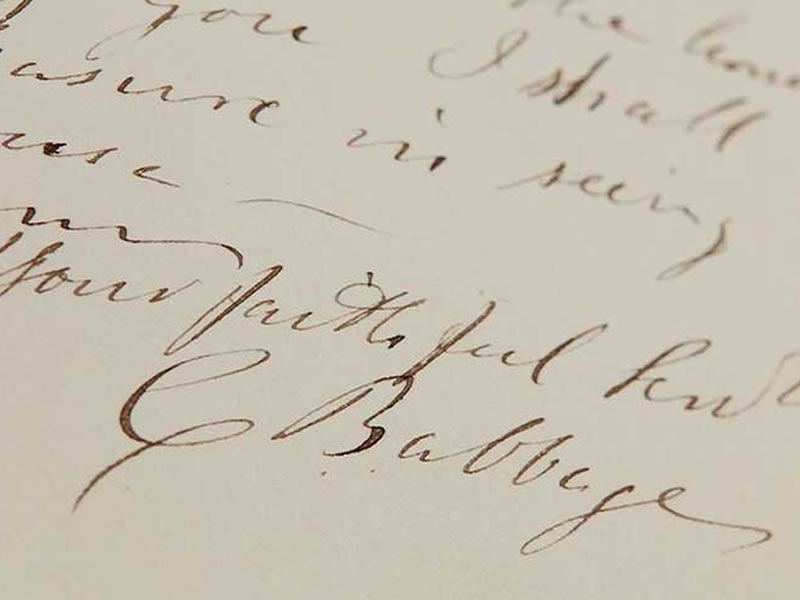 you the
I shall
in seeing
Your faithful
C Babbage